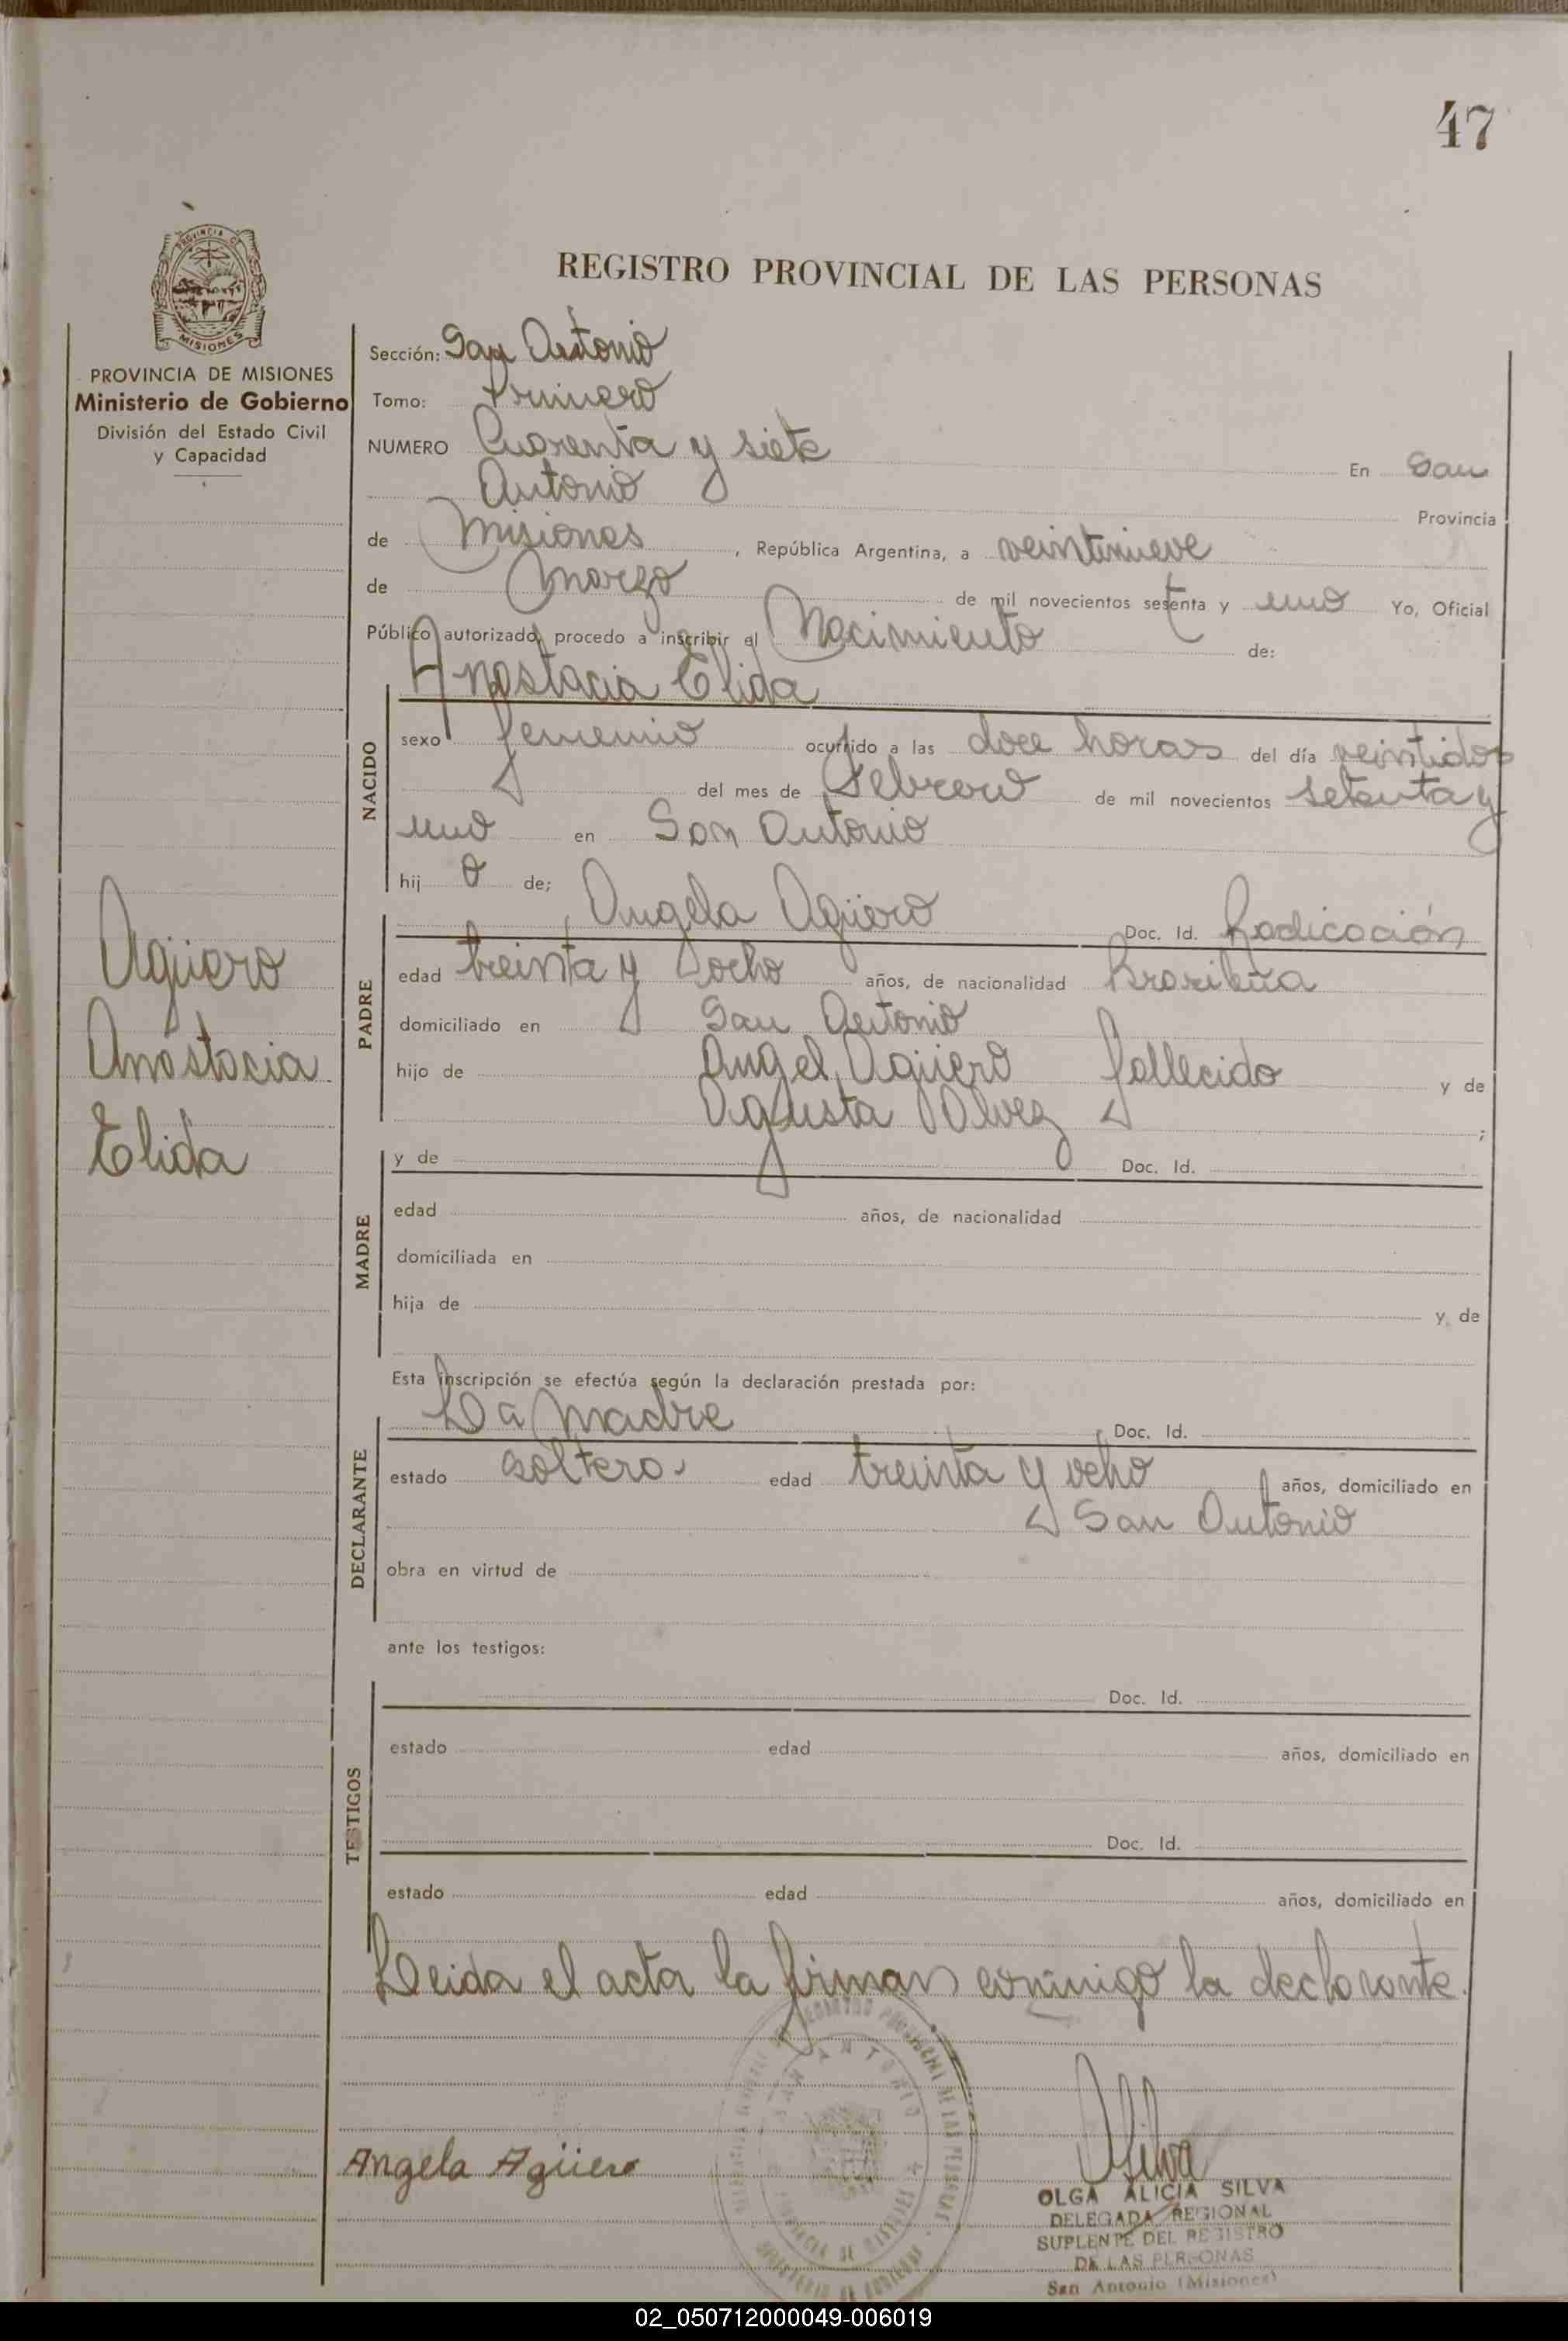 47
REGISTRO PROVINCIAL DE LAS PERSONAS
PROVINCIA DE MISIONES
PROVINCIA DE MISIONES
Ministerio de Gobierno
División del Estado Civil
y Capacidad
Sección: San Antonio
Tomo: Primero
NUMERO Cuarenta y siete En San
Antonio Provincia
de Misiones, República Argentina, a veintinueve
de Marzo de mil novecientos setenta y uno Yo, Oficial
Público autorizado, procedo a inscribir el Nacimiento de:
Anastacia Elida
NACIDO
sexo femenino ocurrido a las doce horas del día veintidos
del mes de Febrero de mil novecientos setenta y
uno en San Antonio
hij a de; Angela Agüero Doc. Id. Radicación
PADRE
edad treinta y ocho años, de nacionalidad Brasileña
domiciliado en San Antonio
hijo de Angel Agüero fallecido y de
Agusta Alvez ;
Agüero
Anastacia
Elida
MADRE
y de Doc. Id.
edad años, de nacionalidad
domiciliada en
hija de y de
Esta inscripción se efectúa según la declaración prestada por:
La Madre Doc. Id.
DECLARANTE
estado soltera edad treinta y ocho años, domiciliado en
San Antonio
obra en virtud de
ante los testigos:
TESTIGOS
Doc. Id.
estado edad años, domiciliado en
Doc. Id.
estado edad años, domiciliado en
Leida el acta la firman conmigo la declarante.
Angela Agüero
Silva
OLGA ALICIA SILVA
DELEGADA REGIONAL
SUPLENTE DEL REGISTRO
DE LAS PERSONAS
San Antonio (Misiones)
SAN ANTONIO
PROVINCIA DE MISIONES
02_050712000049-006019